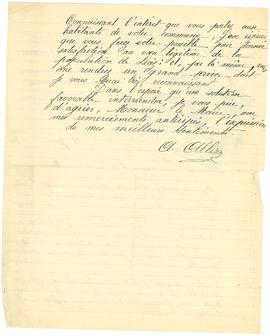 Connaissant l'intérêt que vous portez aux
habitants de votre commune, j'ose espérer
que vous ferez votre possible pour donner
satisfaction au vœu légitime de la
population de et, par là même, vous
me rendrez un grand service dont
je vous serai très reconnaissant.
Dans l'espoir que une solution
favorable interviendra, je vous prie,
d'agréer, Monsieur le Maire, avec
mes remerciements anticipés, l'expression
de mes meilleurs sentiments